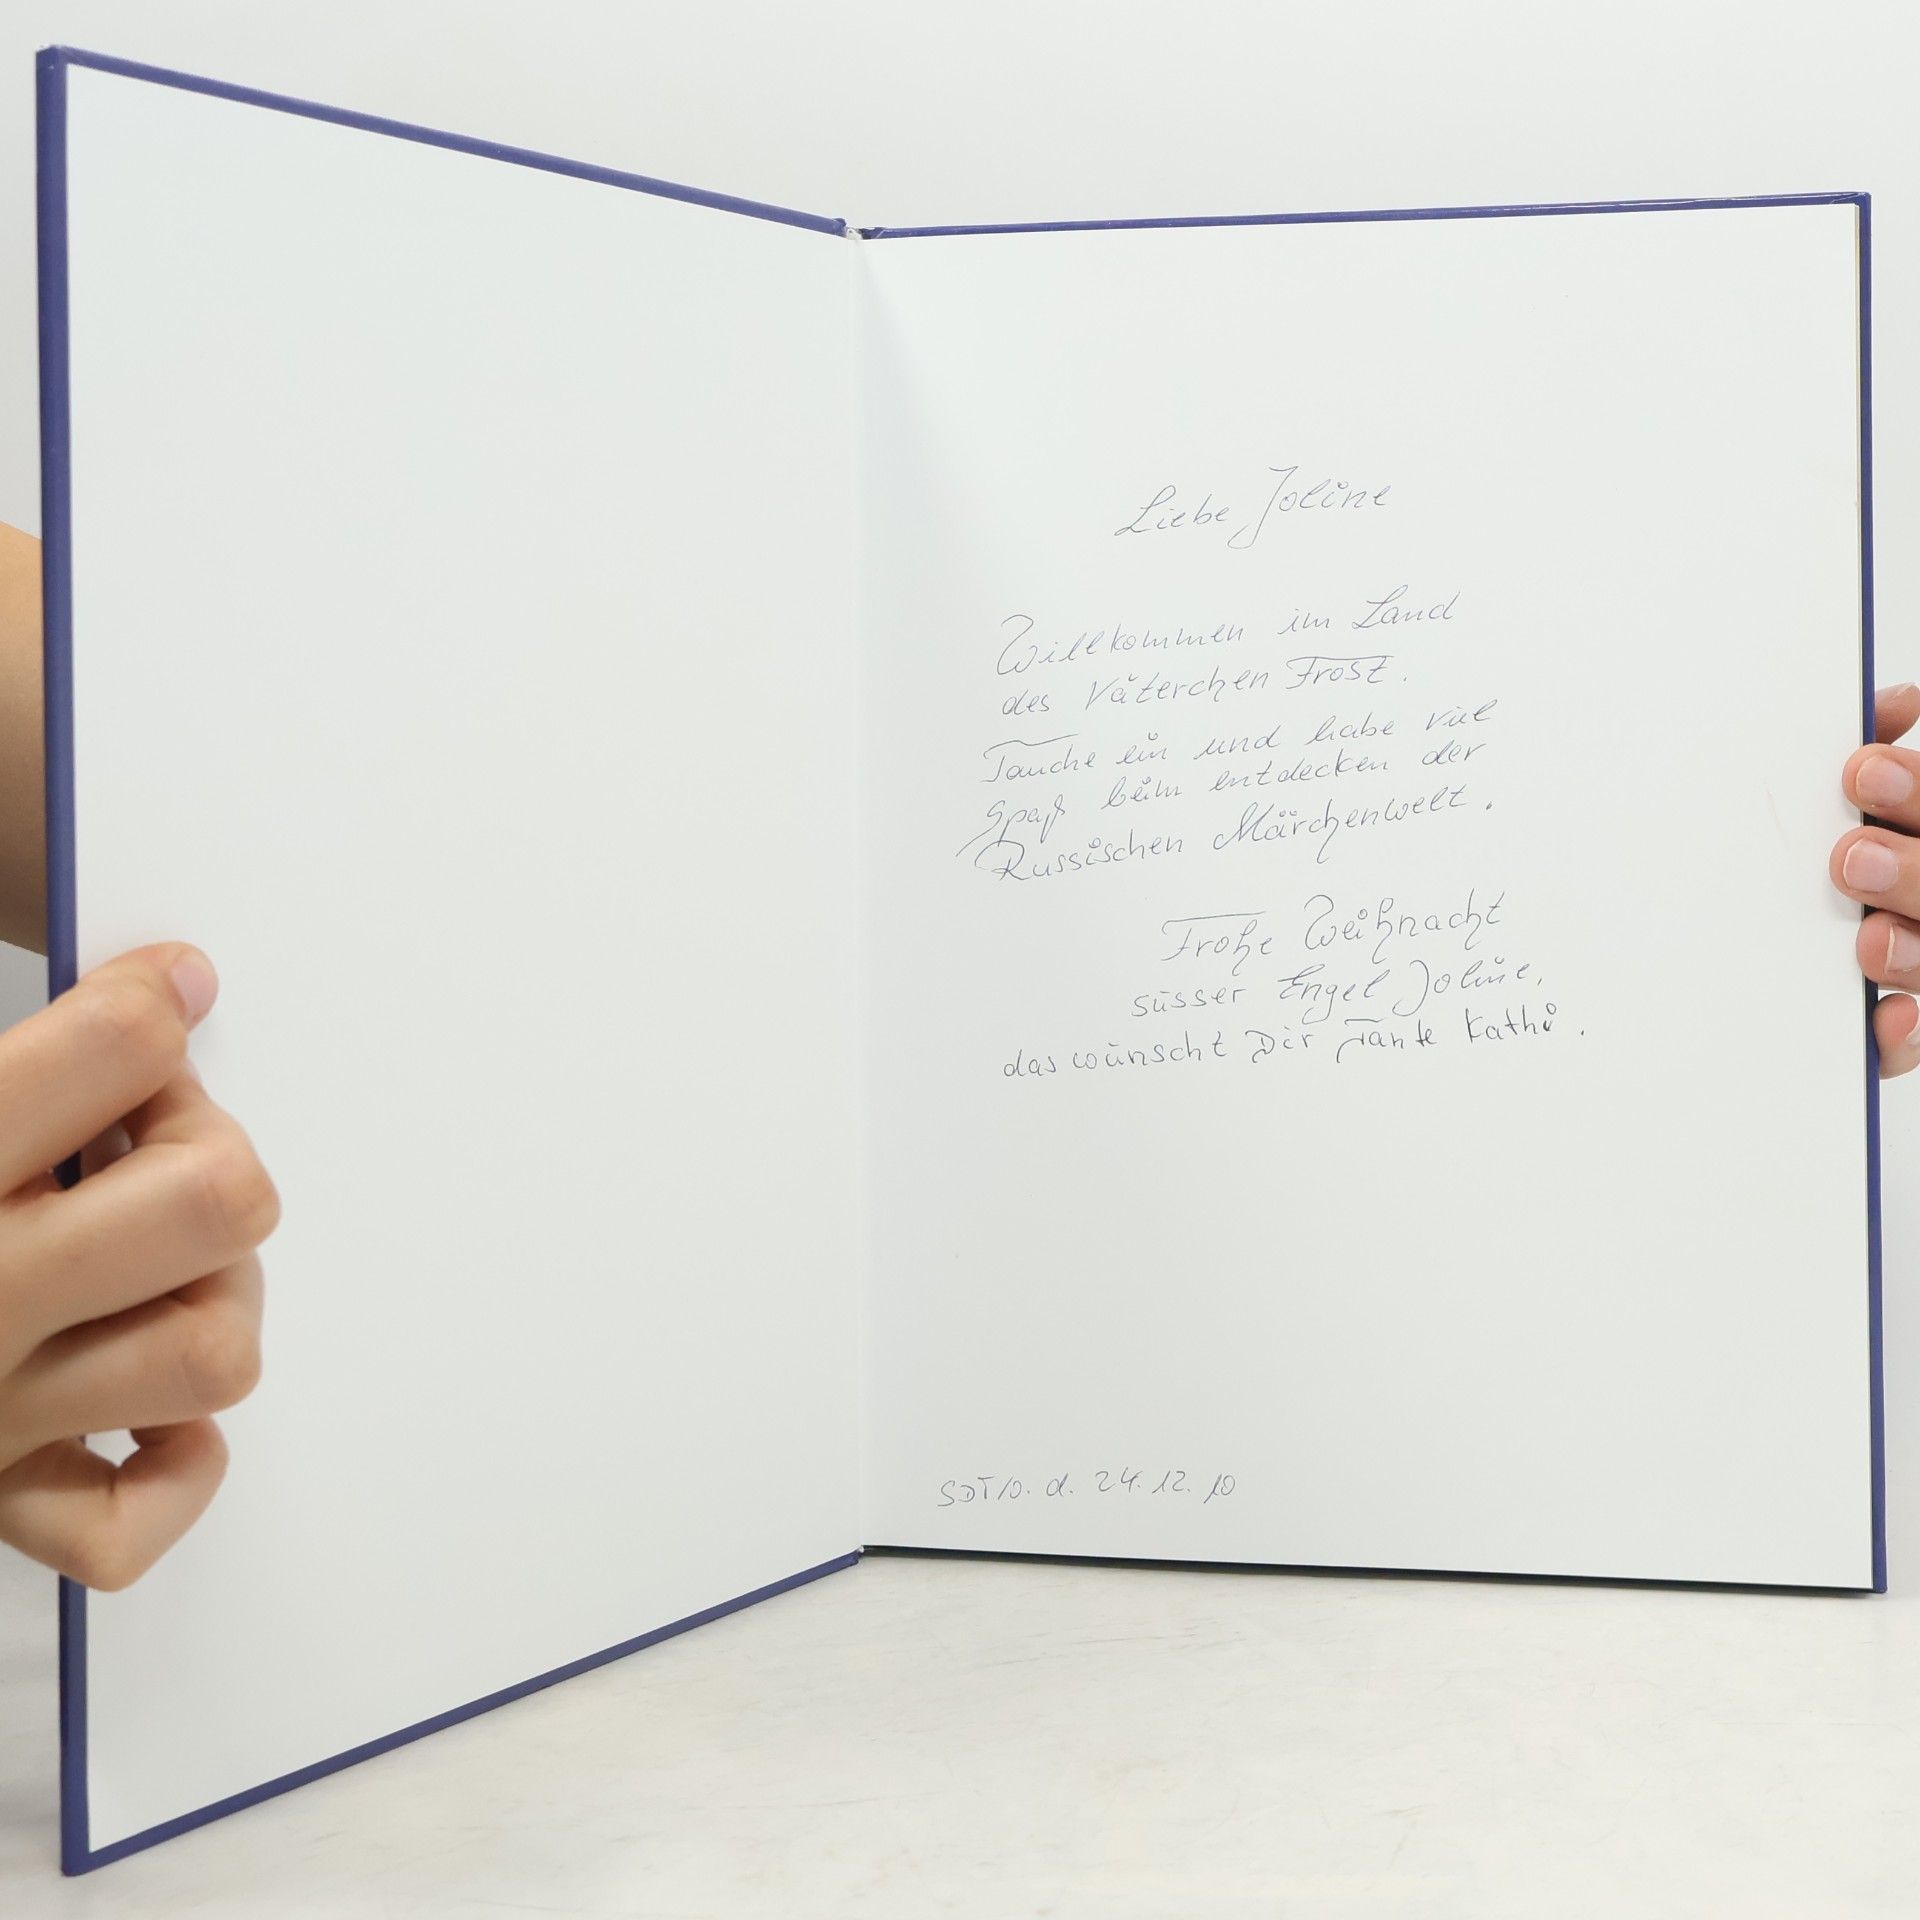 Liebe Joline
Willkommen im Land
des Väterchen Frost.
Tauche ein und habe viel
Spaß beim entdecken der
Russischen Märchenwelt.
Frohe Weihnacht
süsser Engel Joline,
das wünscht Dir Tante Kathi.
d. 24.12.10